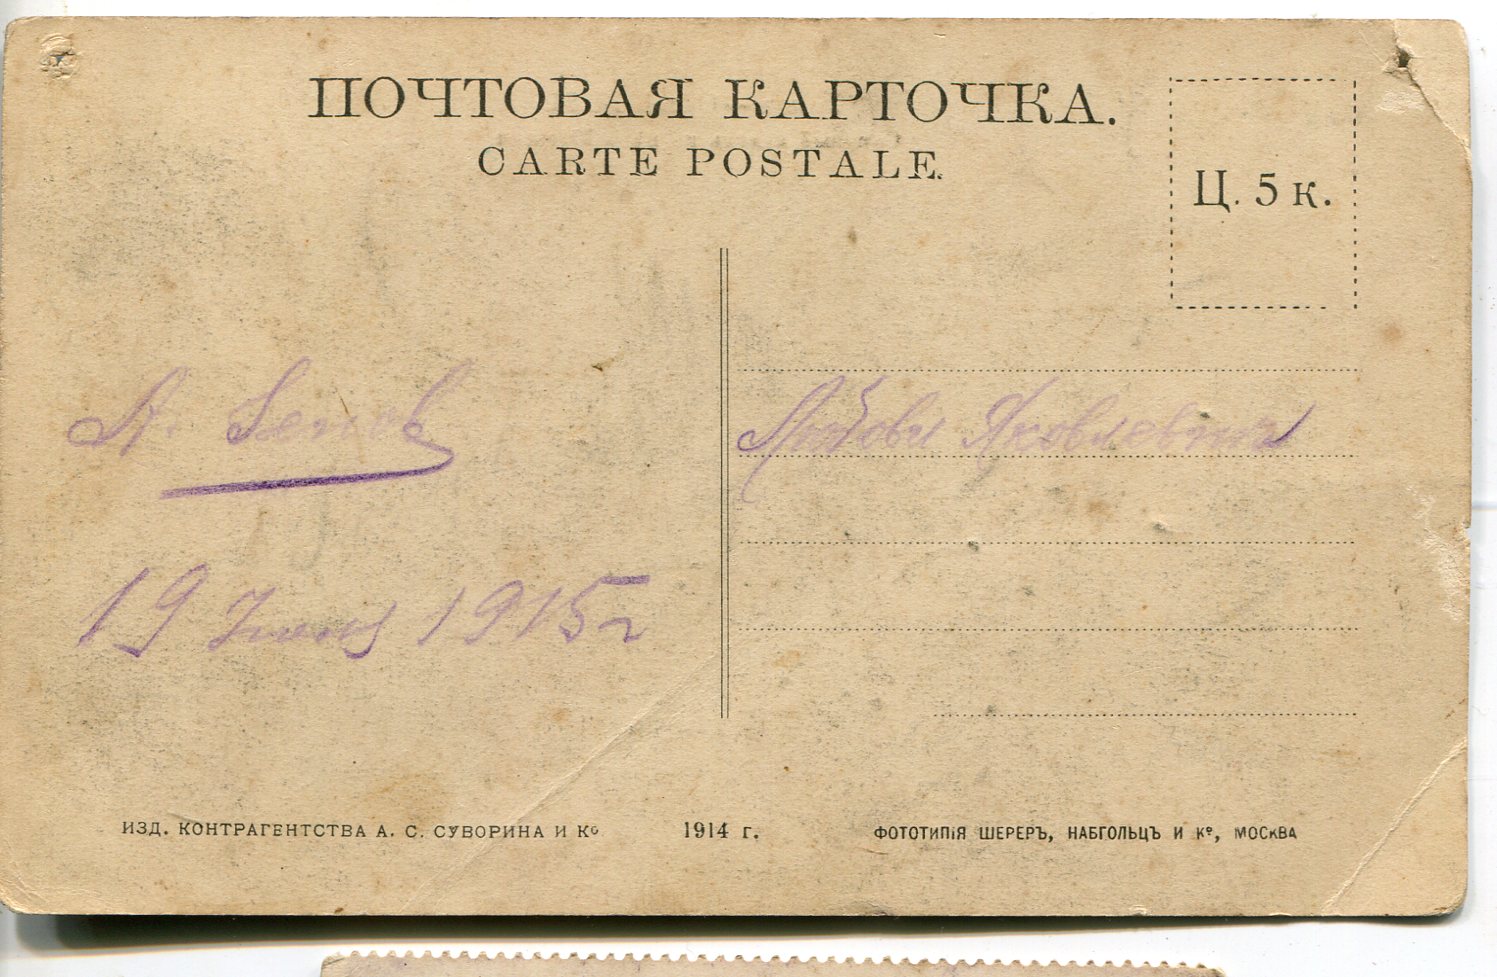 ПОЧТОВАЯ КАРТОЧКА.
CARTE POSTALE.
Ц. 5 к.
А.
19 Июня 1915 г
Любови Яковлевны
ИЗД. КОНТРАГЕНТСТВА А. С. СУВОРИНА И Кº
1914 г.
ФОТОТИПІЯ ШЕРЕРЪ, НАБГОЛЬЦЪ И Кº, МОСКВА